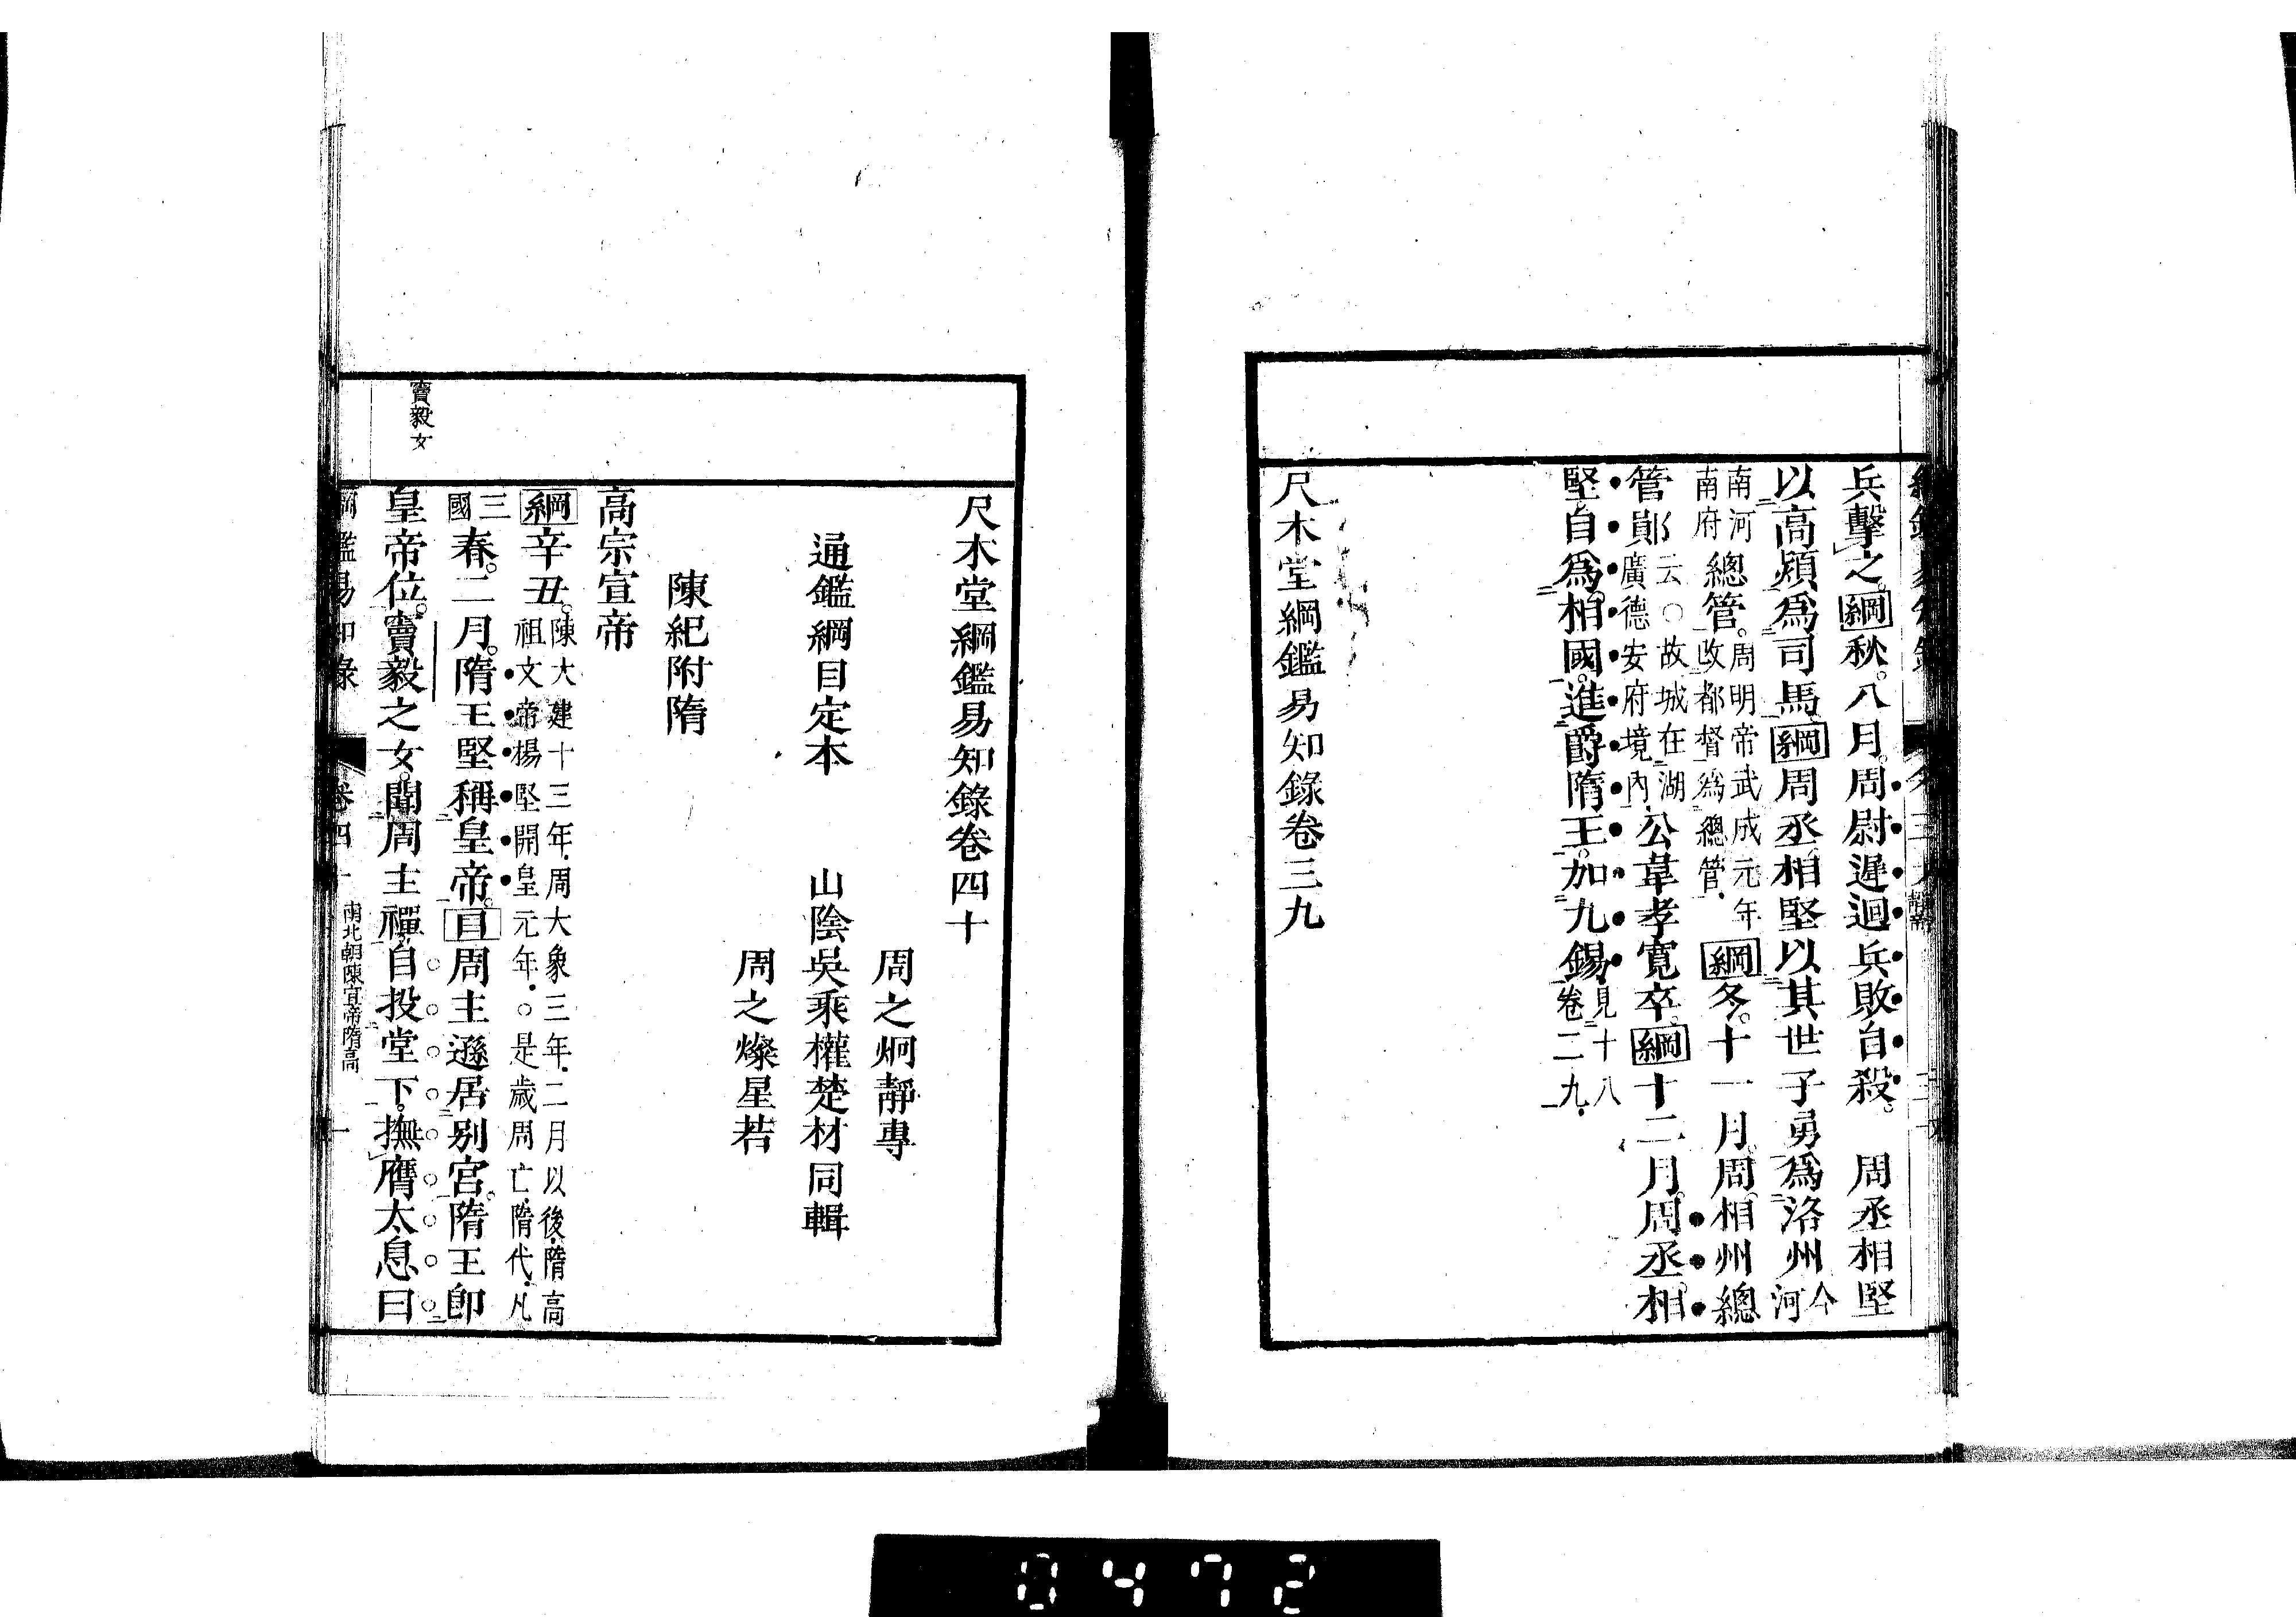 兵擊之。綱秋。八月。周尉遲迥兵敗自殺。　周丞相堅
以高熲爲司馬。綱周丞相堅以其世子勇爲洛州今河
南河南府總管。周明帝武成元年改都督爲總管。綱冬。十一月。周相州總
管鄖云○故城在湖廣德安府境內。公韋孝寬卒。綱十二月。周丞相
堅自爲相國。進爵隋王。加九錫。見十八卷二九。
尺木堂綱鑑易知錄卷三九
尺木堂綱鑑易知錄卷四十
周之炯靜專
通鑑綱目定本　山陰吳乘權楚材同輯
周之燦星若
陳紀附隋
高宗宣帝
綱辛丑。陳大建十三年。周大象三年。二月以後。隋高祖文帝楊堅開皇元年。○是歲周亡。隋代。凡
三國春。二月。隋王堅稱皇帝。目周主遜居別宮。隋王卽
竇毅女
皇帝位。竇毅之女。聞周主禪。自投堂下。撫膺太息曰
綱鑑易知錄　卷四十　南北朝陳宣帝隋高　一